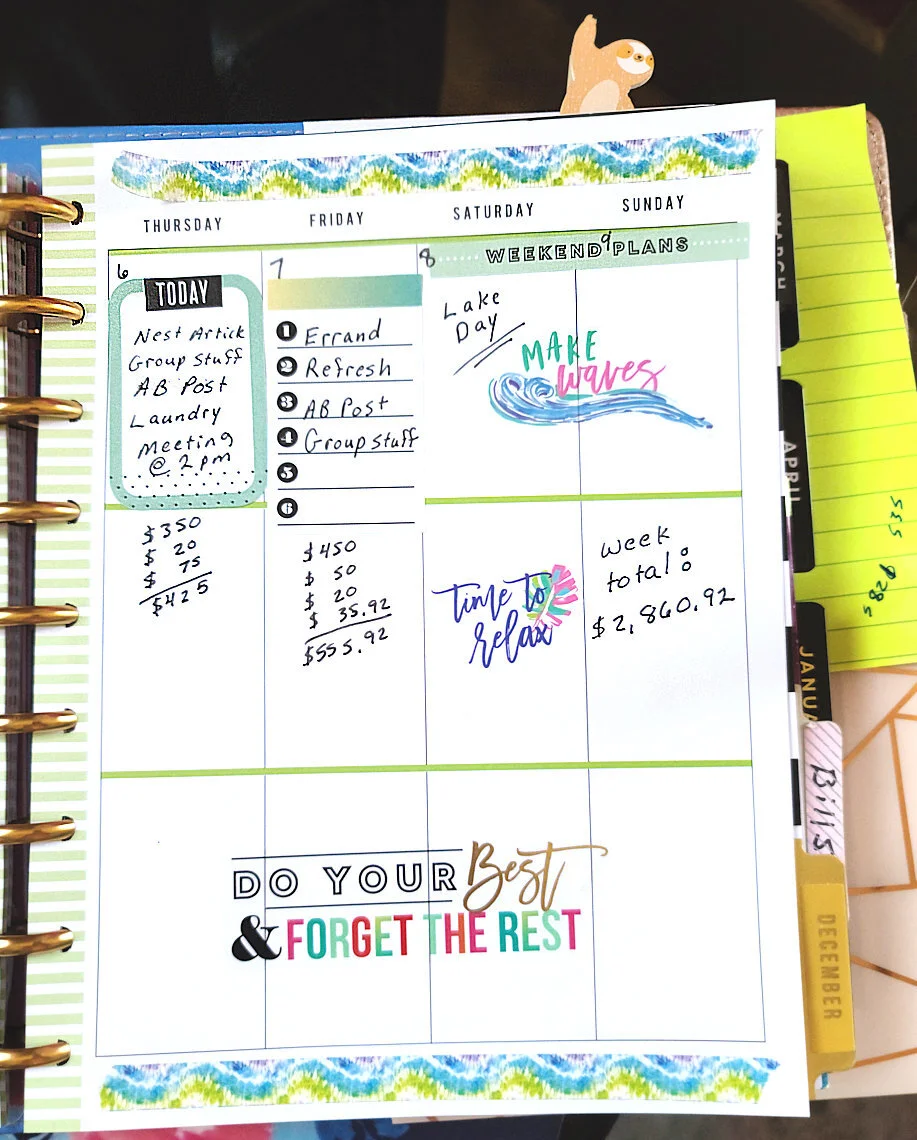 THURSDAY
FRIDAY
SATURDAY
SUNDAY
6
TODAY
Nest Artick
Group Stuff
AB Post
Laundry
Meeting
@ 2pm
$350
$ 20
$ 75
$425
7
1 Errand
2 Refresh
3 AB Post
4 Group stuff
5
6
$450
$ 50
$ 20
$ 35.92
$555.92
8
WEEKEND PLANS
9
Lake
Day
MAKE
waves
time to
relax
week
total:
$2,860.92
DO YOUR Best
& FORGET THE REST
MARCH
APRIL
JANUA
Bills
DECEMBER
535